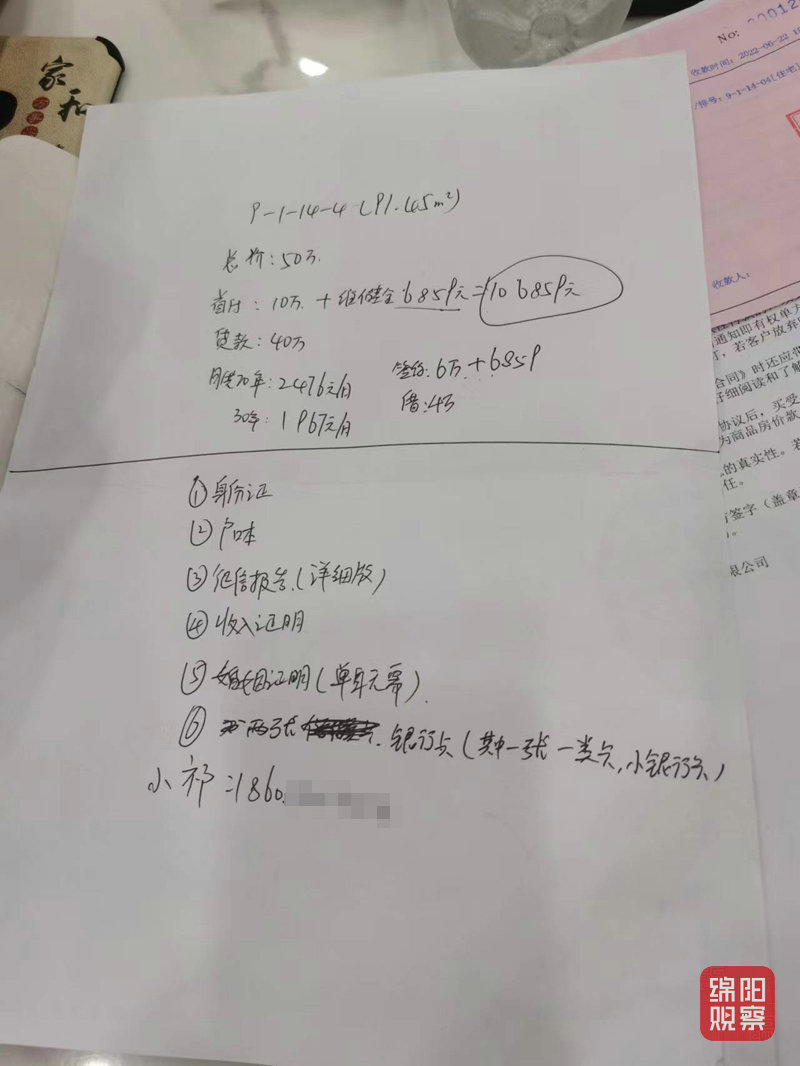 家和
No: 00012
收款时间: 2022-06-22 1
牌号: 9-1-14-04[住宅]
收款人:
9-1-14-4 (91.45m²)
总价: 50万.
首付: 10万. + 维修金 6859元 = 106859元
贷款: 40万
签约: 6万 + 6859
月供20年: 2476元/月
借: 4万
30年: 1967元/月
①身份证
②户口本
③征信报告.(详细版)
④收入证明
⑤婚姻证明(单身无需).
⑥两张 银行卡(其中一张一类卡,小银行卡)
小祁: 1860
通知即有权单方
丁,若客户放弃
合同》时还应带
仔细阅读和了解
协议后,买受
为商品房价款
的真实性。若
任。
签字(盖章
限公司
绵阳
观察